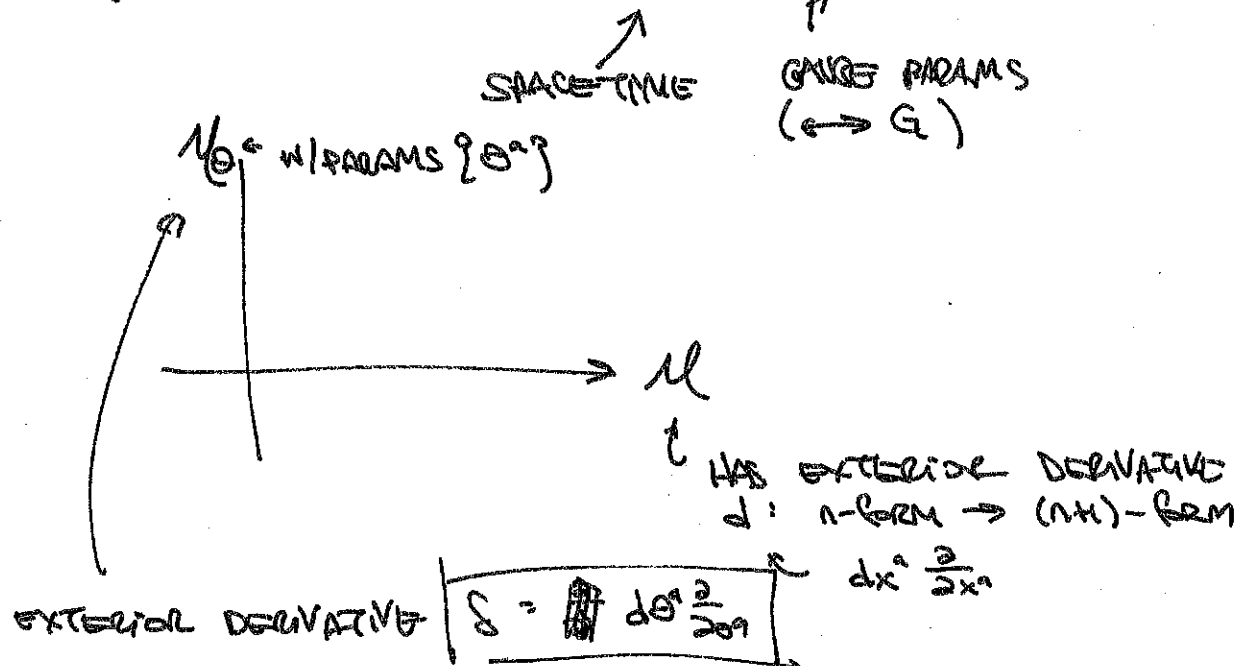 SPACE-TIME GAUGE PARAMS
(↔ G)
M_θ ← W/ PARAMS {θ^a}
M
HAS EXTERIOR DERIVATIVE
d: n-FORM → (n+1)-FORM
dx^a ∂/∂x^a
EXTERIOR DERIVATIVE δ = dθ^a ∂/∂θ^a